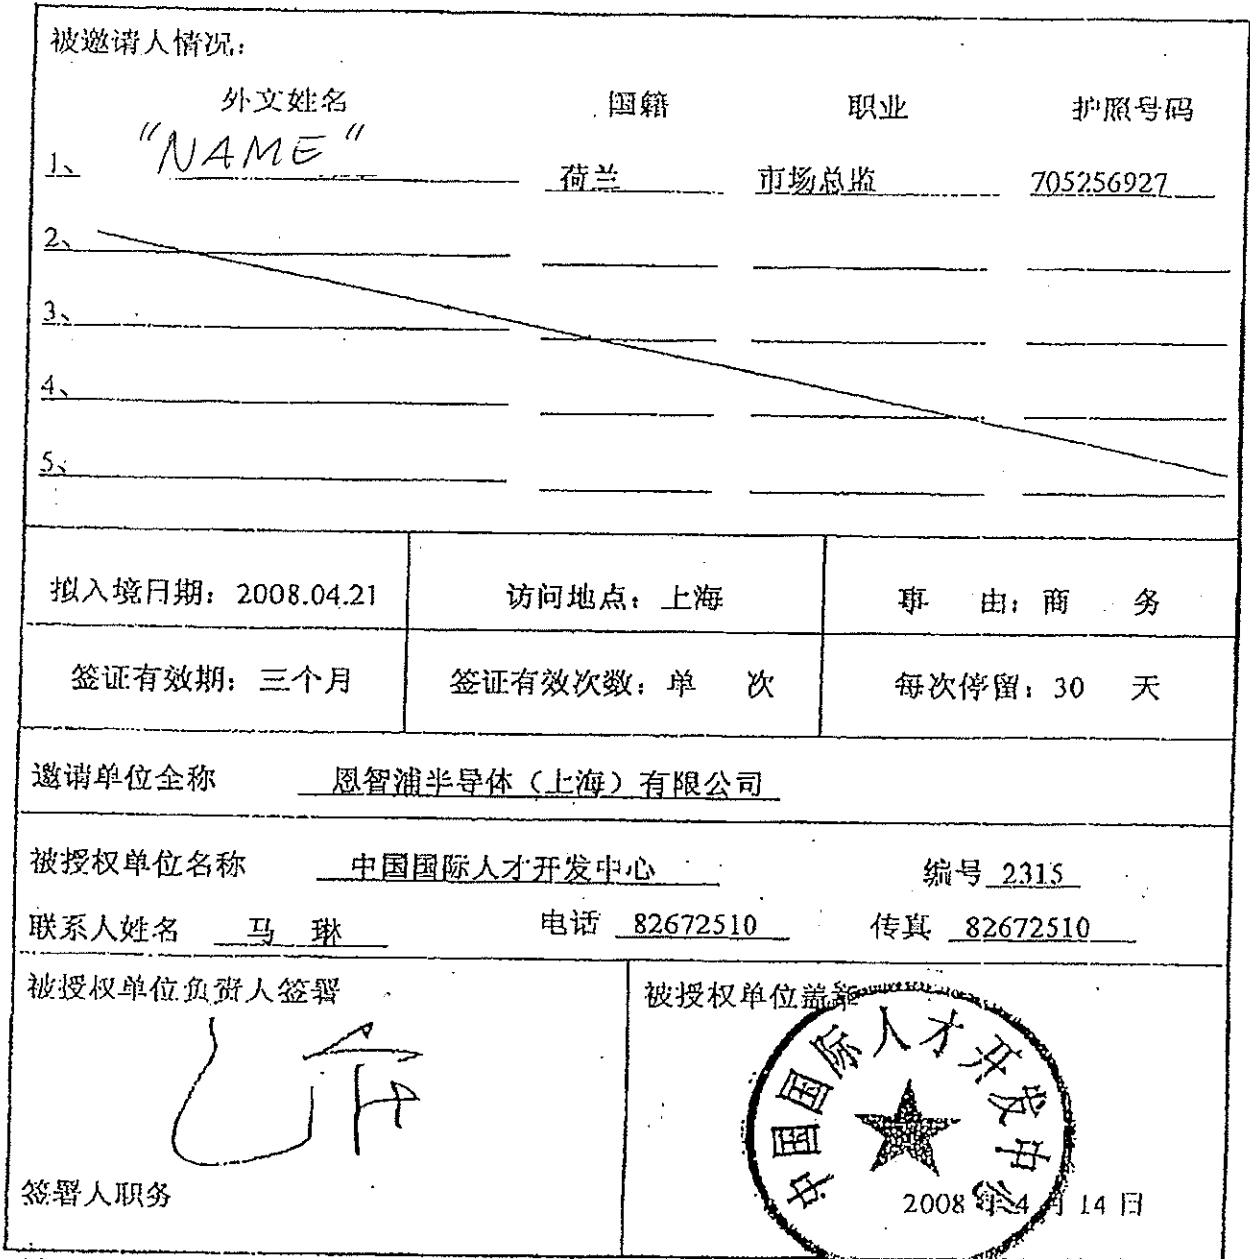 被邀请人情况:
外文姓名 国籍 职业 护照号码
1、 "NAME" 荷兰 市场总监 705256927
2、
3、
4、
5、
拟入境日期: 2008.04.21 访问地点: 上海 事 由: 商 务
签证有效期: 三个月 签证有效次数: 单 次 每次停留: 30 天
邀请单位全称 恩智浦半导体（上海）有限公司
被授权单位名称 中国国际人才开发中心 编号 2315
联系人姓名 马 琳 电话 82672510 传真 82672510
被授权单位负责人签署 被授权单位盖章
中国国际人才开发中心
签署人职务 2008 年 4 月 14 日